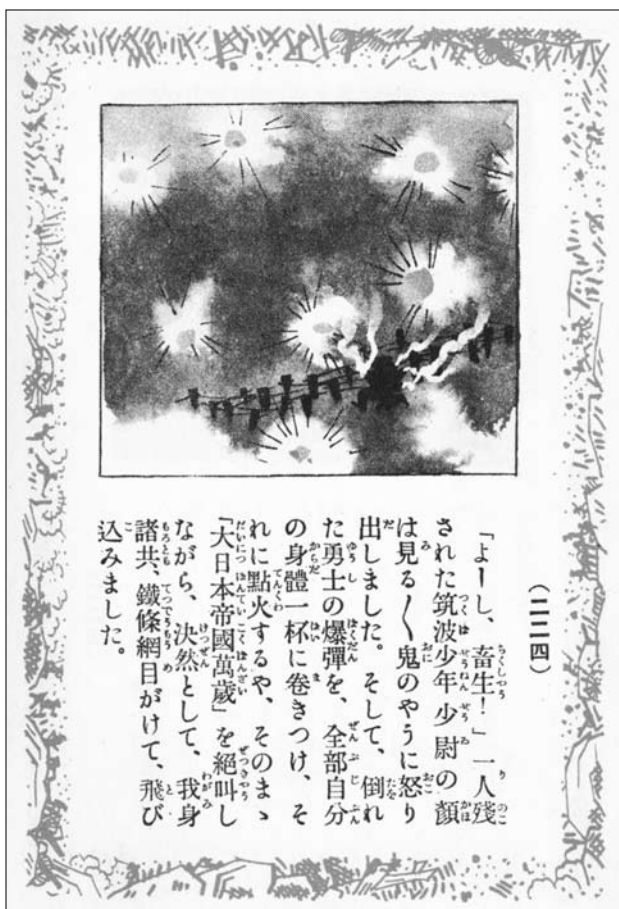 (二二四)
「よーし、畜生！」一人残
された筑波少年少尉の顏
は見る〳〵鬼のやうに怒り
出しました。そして、倒れ
た勇士の爆彈を、全部自分
の身體一杯に卷きつけ、そ
れに點火するや、そのまゝ
「大日本帝國萬歳」を絕叫し
ながら、決然として、我身
諸共、鐵條網目がけて、飛び
込みました。